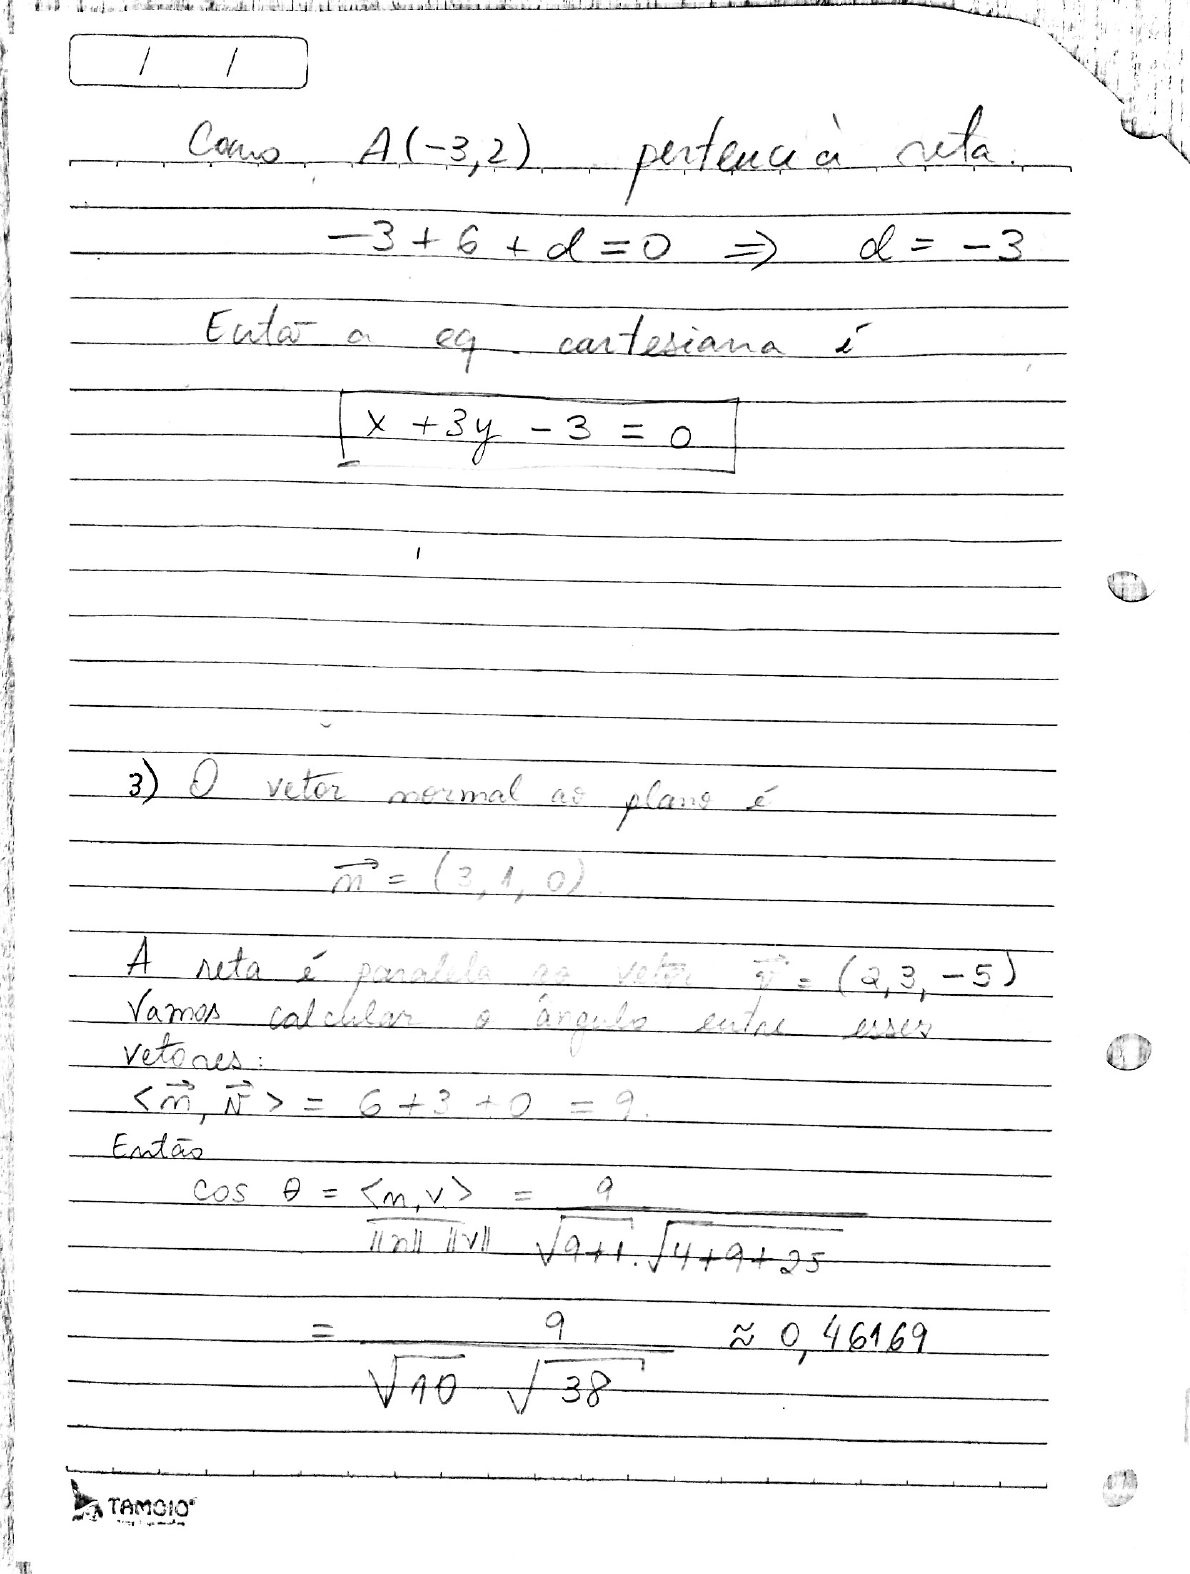 / /
Como A(-3,2) pertence à reta.
-3 + 6 + d = 0 ⇒ d = -3
Então a eq. cartesiana é
x + 3y - 3 = 0
3) O vetor normal ao plano é
n⃗ = (3, 1, 0).
A reta é paralela ao vetor v⃗ = (2, 3, -5)
Vamos calcular o ângulo entre esses
vetores:
<n⃗, v⃗> = 6 + 3 + 0 = 9.
Então
cos θ = <n, v> / ||n|| ||v|| = 9 / √(9+1) . √(4+9+25)
= 9 / √10 √38 ≈ 0,46169
TAMOIO